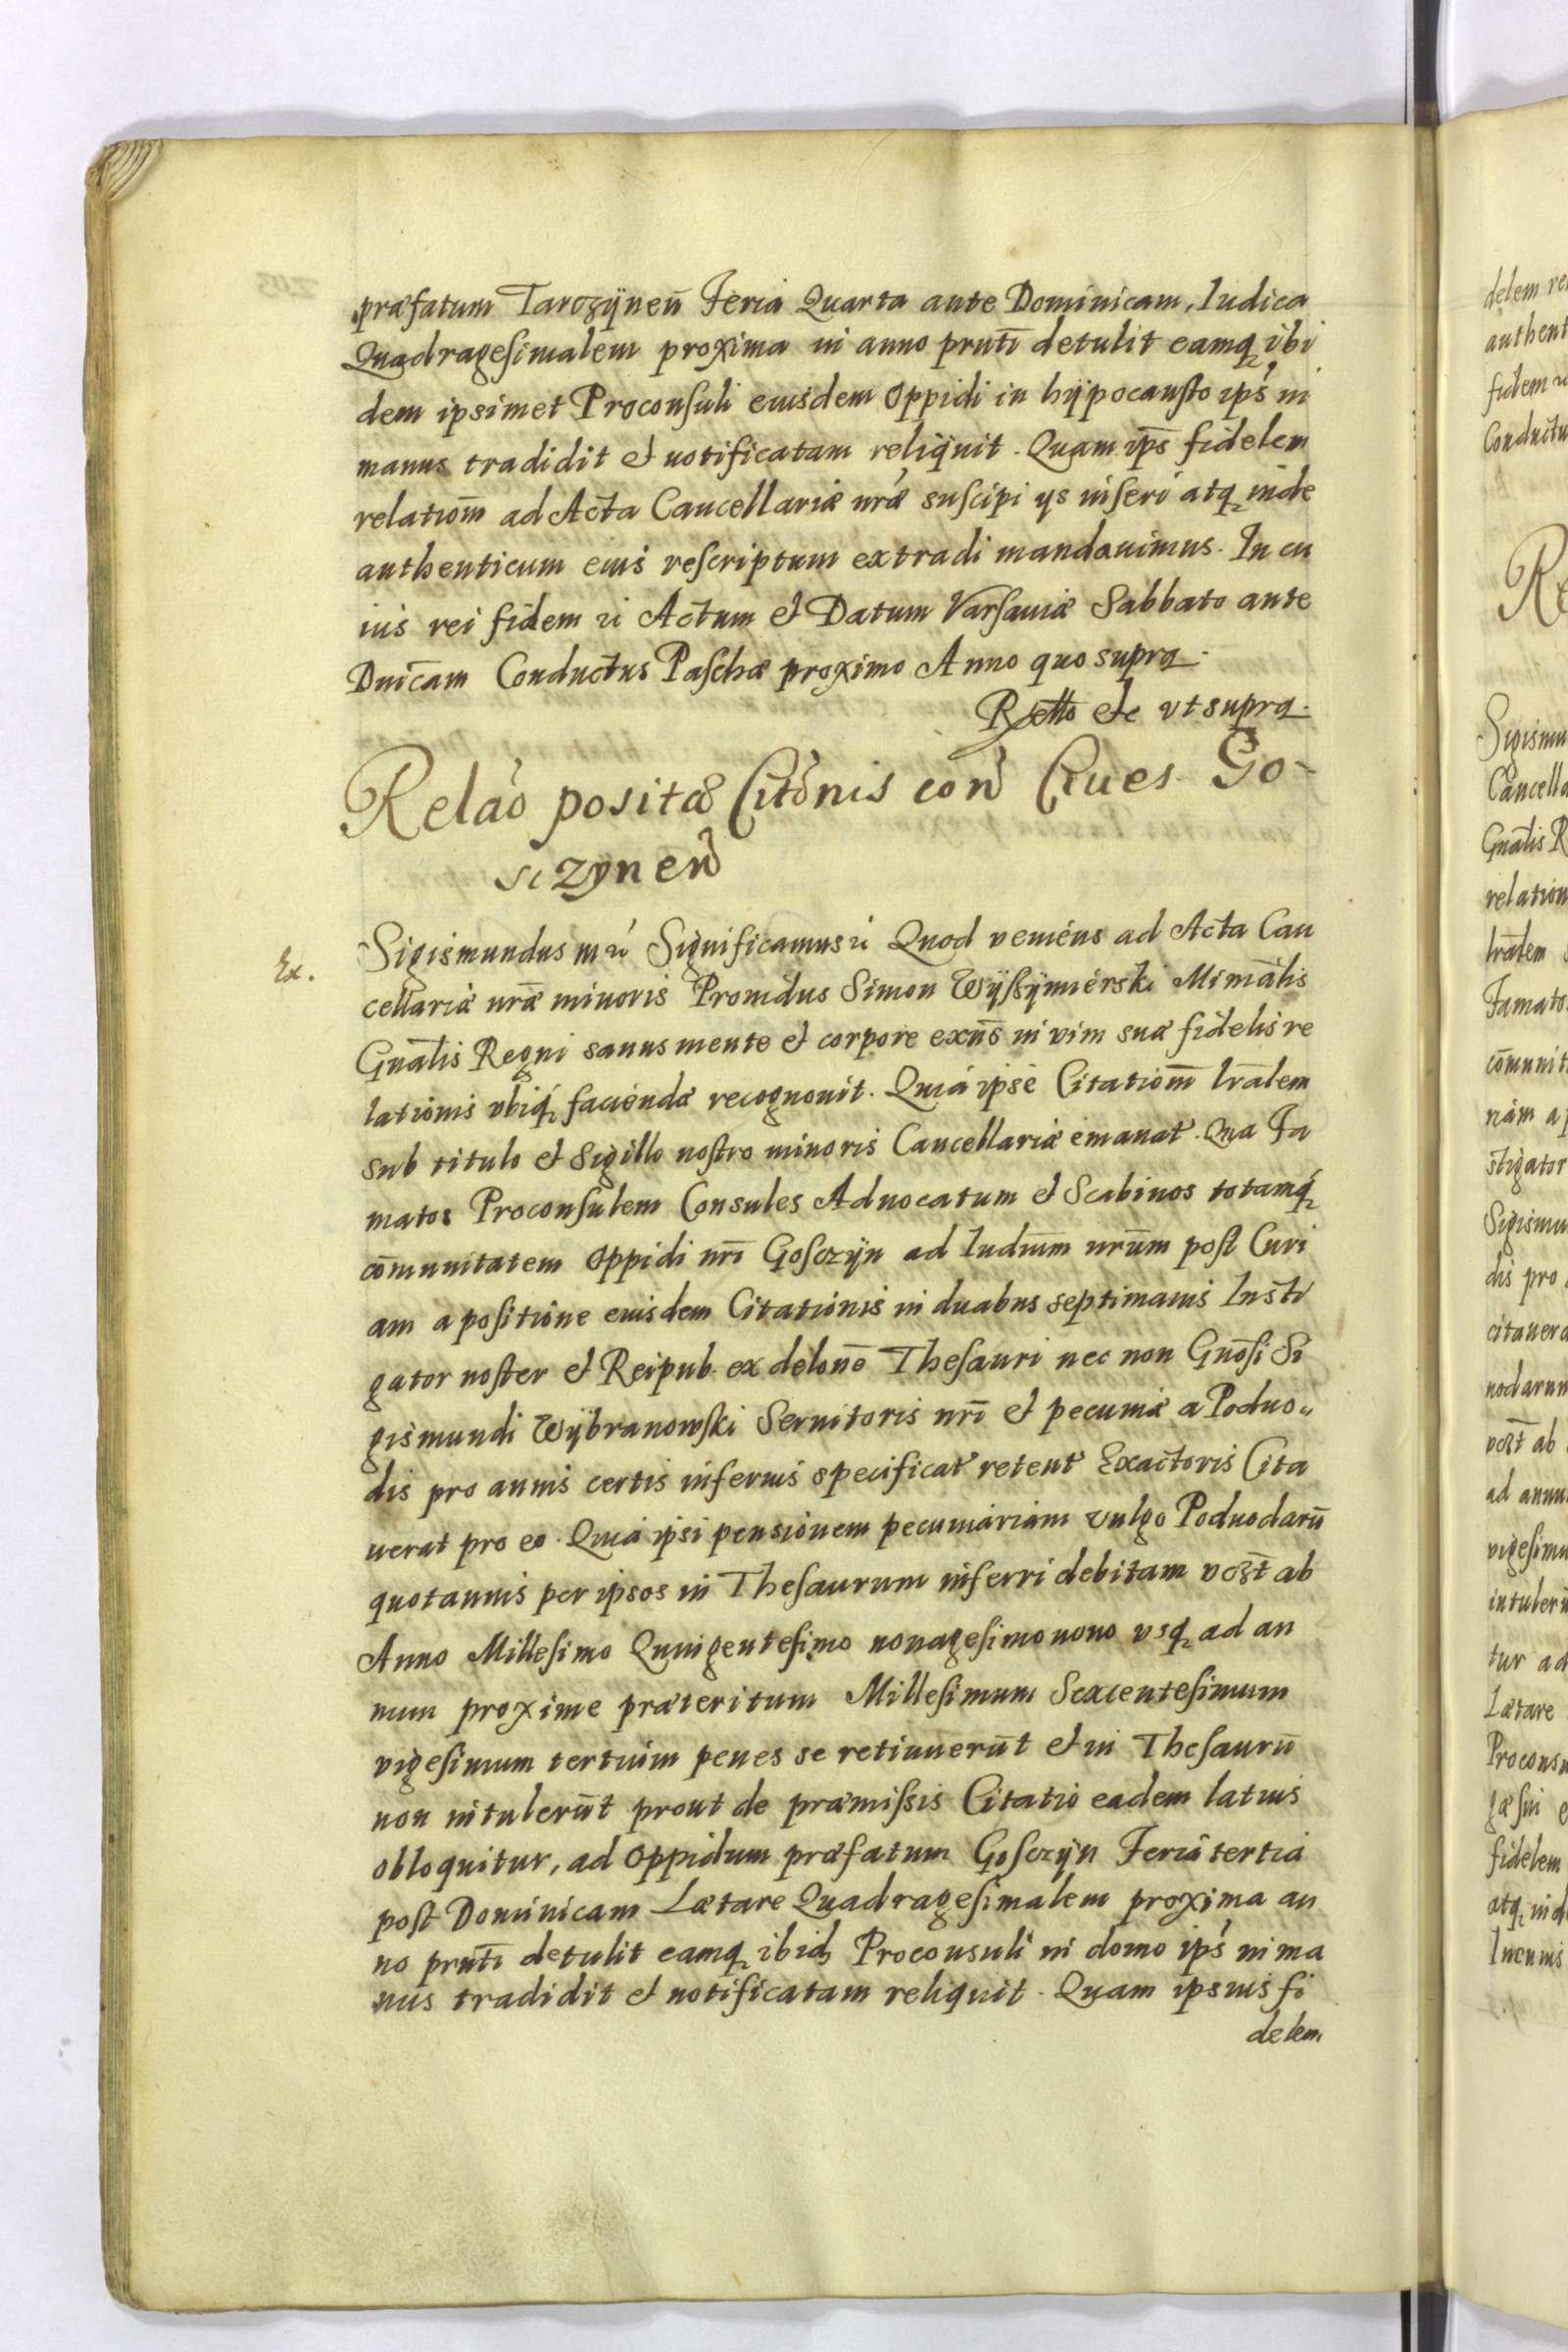 præfatum Tarczÿnen̄ Feria Quarta ante Dominicam, Iudica
Quadragesimalem proxima in anno prnti detulit eamq ibi
dem ipsimet Proconsuli eiusdem Oppidi in hÿpocausto ips̄ in
manus tradidit et notificatam reliquit. Quam ips̄ fidelem
relatiom̄ ad Acta Cancellariæ nrǣ suscipi ys inseri atq inde
authenticum eius rescriptum extradi mandauimus. In cu
ius rei fidem Actum et Datum Varsauiæ Sabbato ante
Dnicam Conductus Paschæ proximo Anno quo supra.
etc vt supra.
Relaō positæ Citōnis con Ciues Go-
sczynen
Ex.
Sigismundus Significamus Quod veniens ad Acta Can
cellariæ nrǣ minoris Prouidus Simon Wÿszÿmierski Minrālis
Gnālis Regni sanus mente et corpore exns̄ in vim suæ fidelis re
lationis vbiq faciendæ recognouit. Quia ipse Citatiom̄ lrālem
sub titulo et Sigillo nostro minoris Cancellariæ emanat. Qua Fa
matos Proconsulem Consules Aduocatum et Scabinos totamq
cōmunitatem Oppidi nri Gosczÿn ad Iudium nrūm post Curi
am a positione eiusdem Citationis in duabus septimanis Insti
gator noster et Reipub. ex delone Thesauri nec non Gnōsi Si
gismundi Wÿbranowski Seruitoris nri et pecuniæ a Poduo
dis pro annis certis inferius specificat retent Exactoris Cita
uerat pro eo. Quia ipsi pensionem pecuniariam vulgo Poduodarū
quotannis per ipsos in Thesaurum inferri debitam ab
Anno Millesimo Quingentesimo nonagesimo nono vsq ad an
num proxime præteritum Millesimum Sexcentesimum
vigesimum tertium penes se retinuerūt et in Thesaurū
non intulerūt prout de præmissis Citatio eadem latius
obloquitur, ad Oppidum præfatum Gosczÿn Feria tertia
post Dominicam Lætare Quadragesimalem proxima an
no prnti detulit eamq ibid Proconsuli in domo ips̄ in ma
nus tradidit et notificatam reliquit. Quam ipsius fi
delem
delem
authent
fidem
Conductu
Re
Sigismu
Cancella
Gnālis R
relation
lrālem
Famatos
cōmunit
riam a
stigator
Sigismu
dis pro
citauera
uodarum
ab
ad annu
vigesimu
intuleru
tur ad
Lætare
Proconsu
fidelem
atq ind